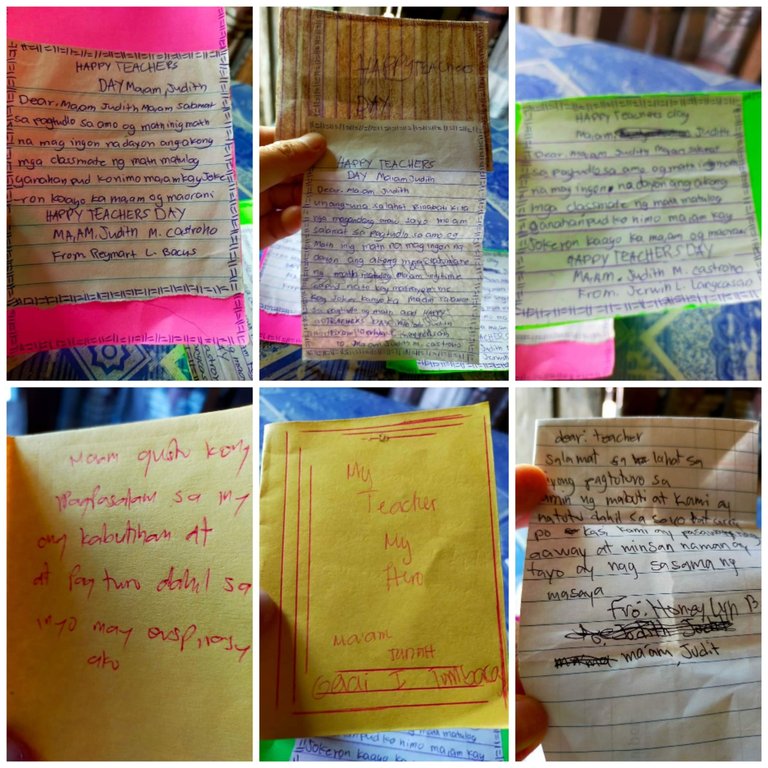 HAPPY TEACHERS
DAY Maam, Judith
Dear. Maam Judith Maam salamat
sa pagtudlo sa amo og math inig math
na mag ingon na dayon ang akong
mga classmate ng math matulog
ganahan pud ko nimo maam kay Joke
ron kaayo ka maam og maorani
HAPPY TEACHERS DAY
MA,AM. Judith M. castroho
From Reymart L. Bacus
HAPPY TEACHERS
DAY
HAPPY TEACHERS
DAY Maam Judith
Dear. Maam Judith
unang-una sa lahat binabati kita
nga magandang araw sayo maam
salamat sa pagtudlo sa amo og
Math inig math na mag ingon na
dayon ang akong mga
ng math
kay Joker kaayo ka maam salamat
sa pagtudlo ng math and HAPPY
TEACHERS DAY Judith
TO. Maam Judith M. castroho
HAPPY Teachers day
Maam. Judith
Dear. Maam Judith Maam salamat
sa pagtudlo sa amo og math inig math
na may ingon, na dayon ang akong
mga classmate ng math matulog
ganahan pud ko nimo maam kay
Jokeron kaayo ka ma,am og maorani
HAPPY TEACHERS DAY
MA,AM. Judith M. castroho
From. Jerwin L. Langcasan
Maam gusto kong
Magpasalam sa iny
ong kabutihan at
at pag turo dahil sa
inyo may
ako
My
Teacher
My
Hero
Ma'am
Judith
dear: teacher
salamat sa lahat sa
iyong pagtuturo sa
amin ng mabuti at kami ay
natuto dahil sa sayo
po kasi kami ay pasaway nag
aaway at minsan naman ay
tayo ay nag sasama ng
masaya
Fro: Honey Lyn B
ma'am, Judit
Jokeron kaayo ka